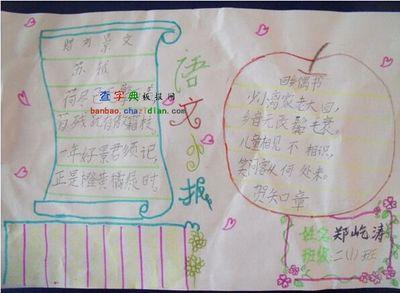 刘景文
苏轼
荷尽已
查字典板报网
banbao.chazidian.com
菊残犹有傲霜枝
一年好景君须记,
正是橙黄橘绿时.
语文小报
回乡偶书
少小离家老大回,
乡音无改鬓毛衰。
儿童相见不相识,
笑问客从何处来。
贺知章
姓名:郑屹涛
班级:二(1)班